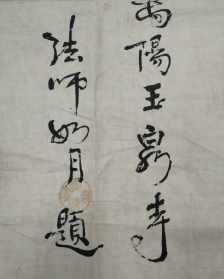 陽玉泉寺
法师如月題